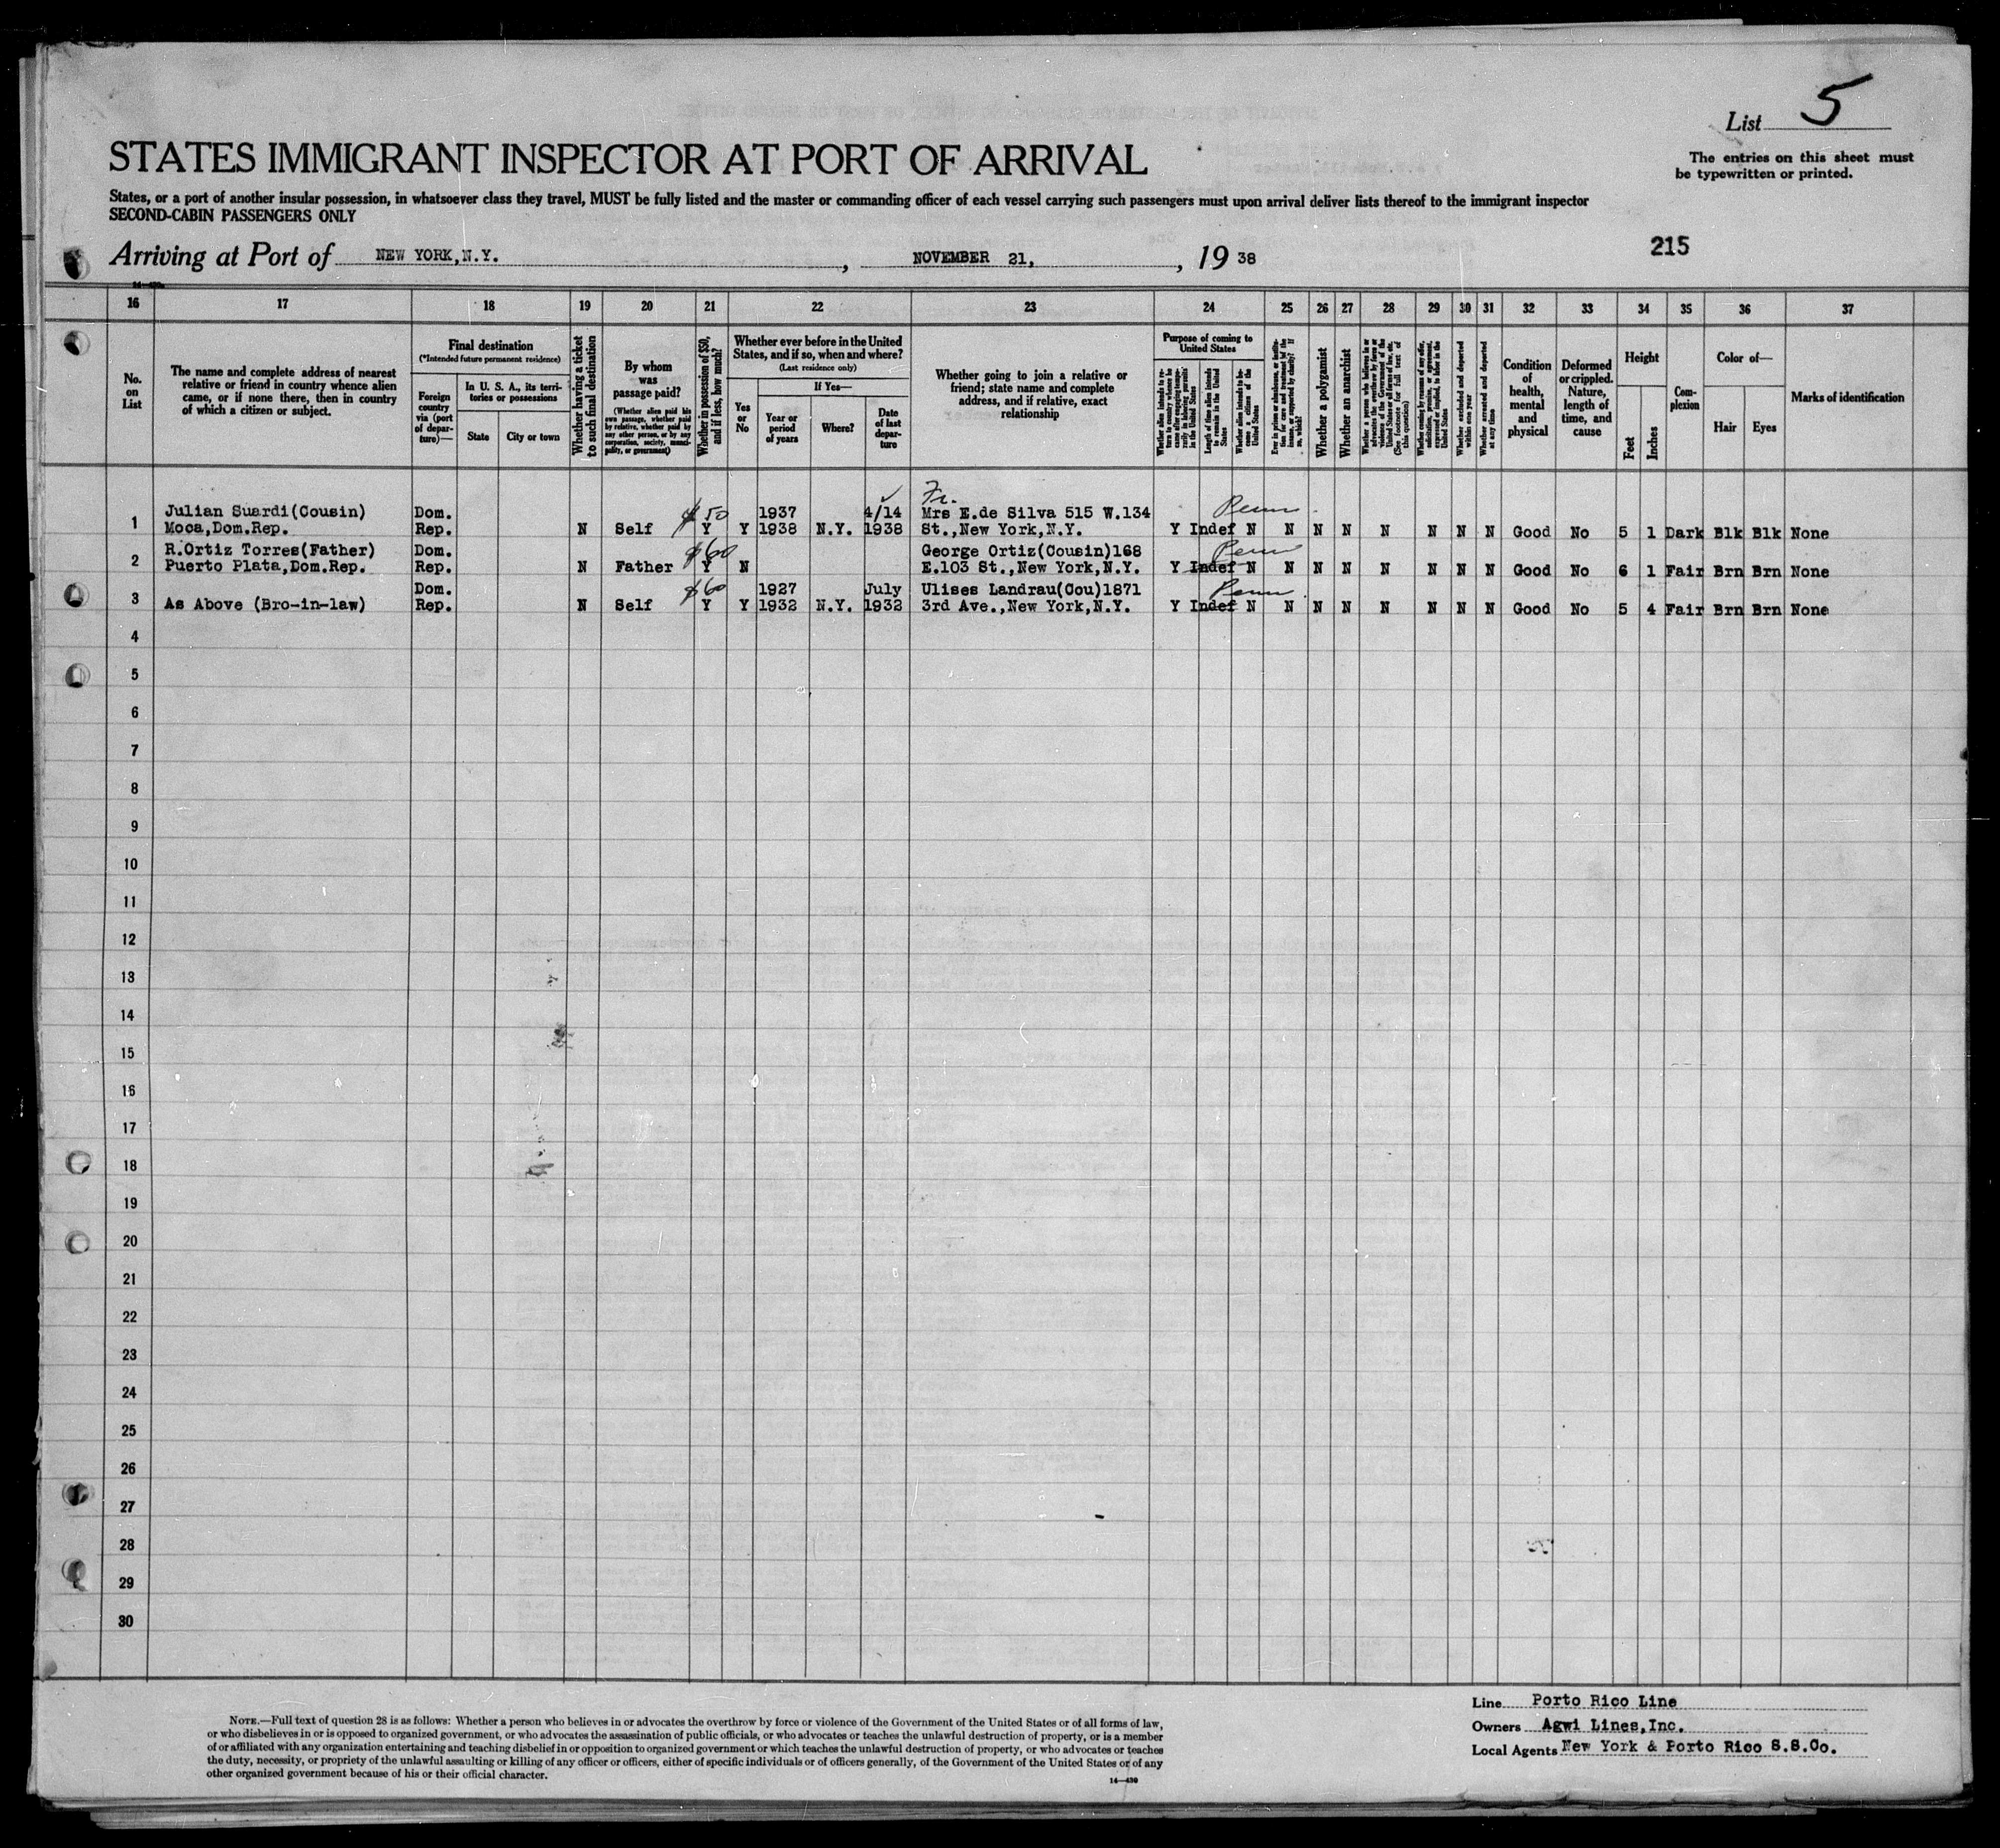 List 5
The entries on this sheet must
be typewritten or printed.
STATES IMMIGRANT INSPECTOR AT PORT OF ARRIVAL
States, or a port of another insular possession, in whatsoever class they travel, MUST be fully listed and the master or commanding officer of each vessel carrying such passengers must upon arrival deliver lists thereof to the immigrant inspector
SECOND-CABIN PASSENGERS ONLY
Arriving at Port of NEW YORK, N.Y. , NOVEMBER 21, , 19 38
215
16 17 18 19 20 21 22 23 24 25 26 27 28 29 30 31 32 33 34 35 36 37
No. on List
The name and complete address of nearest
relative or friend in country whence alien
came, or if none there, then in country
of which a citizen or subject.
Final destination
(*Intended future permanent residence)
Foreign
country
via (port
of depar-
ture)—
In U. S. A., its terri-
tories or possessions
State
City or town
Whether having a ticket
to such final destination
By whom
was
passage paid?
(Whether alien paid his
own passage, whether paid
by relative, whether paid
by any other person, or by any
corporation, society, munici-
pality, or government)
Whether in possession of $50,
and if less, how much?
Whether ever before in the United
States, and if so, when and where?
(Last residence only)
Yes
or
No
If Yes—
Year or
period
of years
Where?
Date
of last
depar-
ture
Whether going to join a relative or
friend; state name and complete
address, and if relative, exact
relationship
Purpose of coming to
United States
Length of time alien intends
to remain in the United
States
Whether alien intends to be-
come a citizen of the
United States
Whether a polygamist
Whether an anarchist
Whether excluded and deported
within one year
Whether arrested and deported
at any time
Condition
of
health,
mental
and
physical
Deformed
or crippled.
Nature,
length of
time, and
cause
Height
Feet
Inches
Com-
plexion
Color of—
Hair
Eyes
Marks of identification
Fr.
Julian Suardi(Cousin) Dom. $50 1937 4/14 Mrs E.de Silva 515 W.134 Perm
1 Moca,Dom.Rep. Rep. N Self Y Y 1938 N.Y. 1938 St.,New York,N.Y. Y Indef N N N N N N N N Good No 5 1 Dark Blk Blk None
R.Ortiz Torres(Father) Dom. $60 George Ortiz(Cousin)168 Perm
2 Puerto Plata,Dom.Rep. Rep. N Father Y N E.103 St.,New York,N.Y. Y Indef N N N N N N N N Good No 6 1 Fair Brn Brn None
Dom. $60 1927 July Ulises Landrau(Cou)1871 Perm
3 As Above (Bro-in-law) Rep. N Self Y Y 1932 N.Y. 1932 3rd Ave.,New York,N.Y. Y Indef N N N N N N N N Good No 5 4 Fair Brn Brn None
4
5
6
7
8
9
10
11
12
13
14
15
16
17
18
19
20
21
22
23
24
25
26
27
28
29
30
NOTE.—Full text of question 28 is as follows: Whether a person who believes in or advocates the overthrow by force or violence of the Government of the United States or of all forms of law,
or who disbelieves in or is opposed to organized government, or who advocates the assassination of public officials, or who advocates or teaches the unlawful destruction of property, or is a member
of or affiliated with any organization entertaining and teaching disbelief in or opposition to organized government or which teaches the unlawful destruction of property, or who advocates or teaches
the duty, necessity, or propriety of the unlawful assaulting or killing of any officer or officers, either of specific individuals or of officers generally, of the Government of the United States or of any
other organized government because of his or their official character.
14—430
Line Porto Rico Line
Owners Agwi Lines,Inc.
Local Agents New York & Porto Rico S.S.Co.